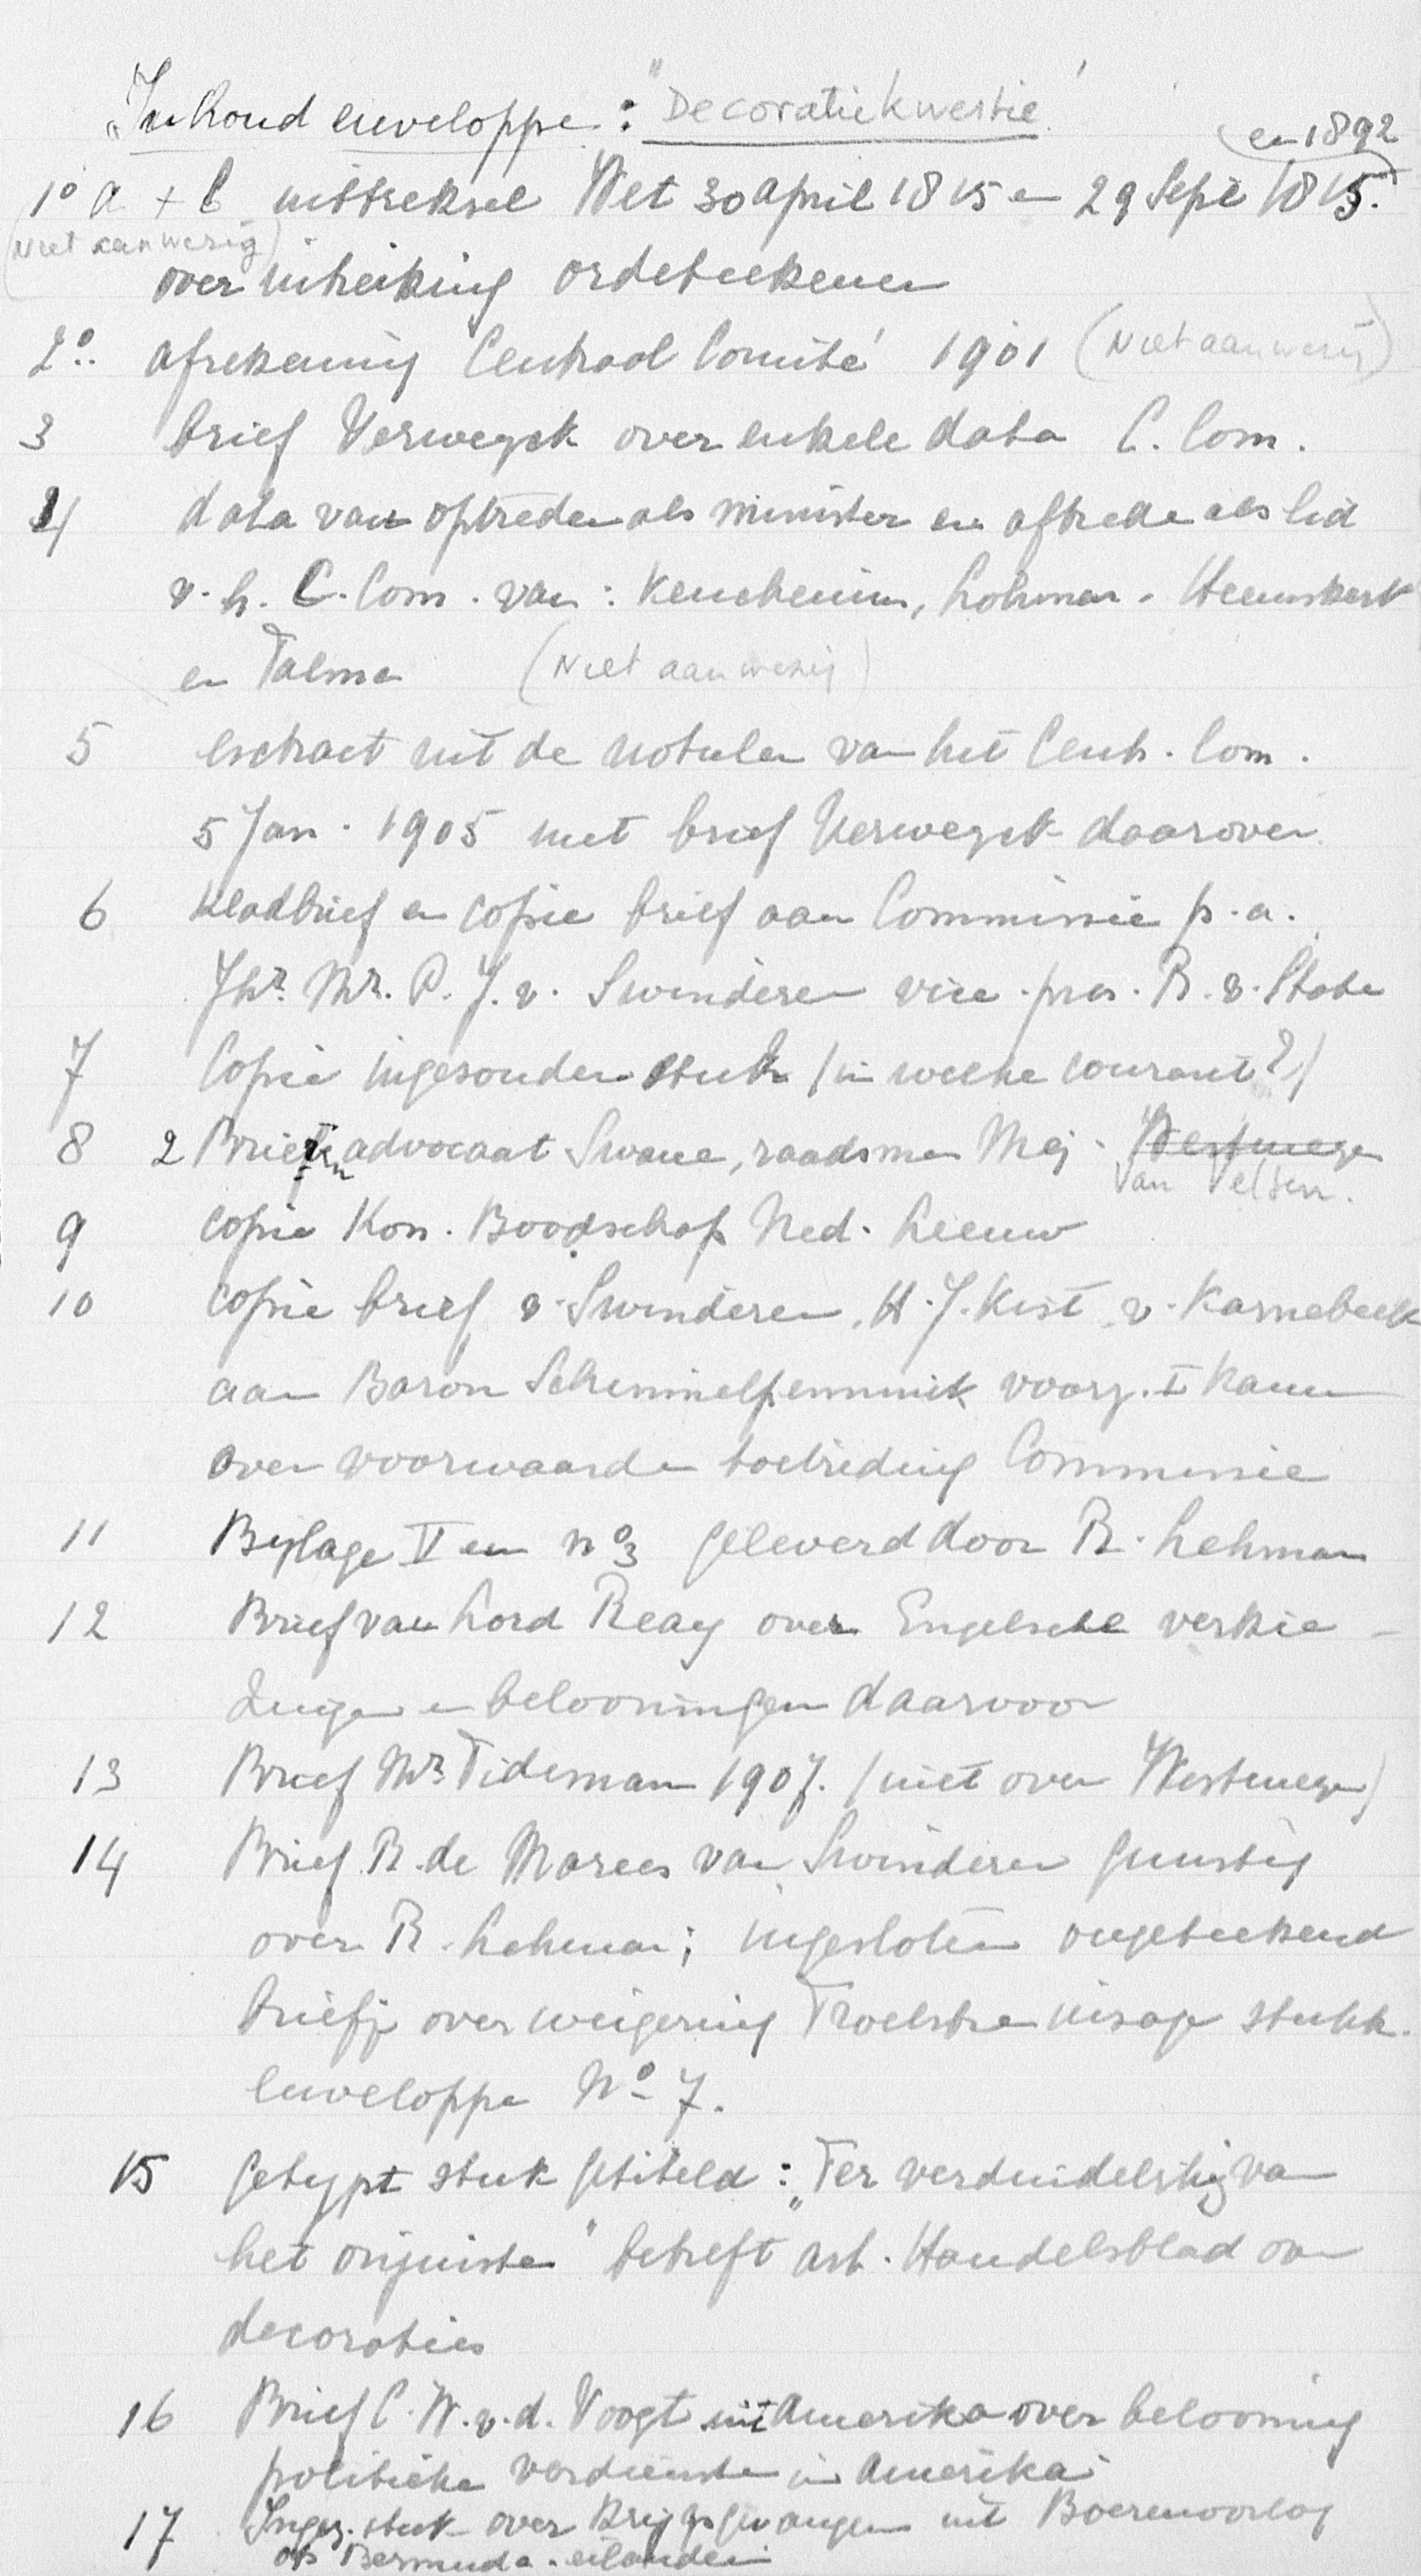 Inhoud enveloppe: "Decoratiekwestie"
en 1892
1º a + b uittreksel Wet 30 april 1815 en 29 Sept 1815.
(Niet aanwezig)
over uitreiking ordeteekenen
2º. afrekening Centraal Comité 1901 (Niet aanwezig)
3 brief Verweyck over enkele data C. Com.
4 data van optreden als minister en aftreden als lid
v. h. C. Com. van: Keuchenius, Lohman. Heemskerk
en Talma (Niet aanwezig)
5 extract uit de notulen van het Centr. Com.
5 Jan. 1905 met brief Verweyck daarover
6 kladbrief en copie brief aan Commissie p.a.
Jhr. Mr. P. J. v. Swinderen vice-pres. R. v. State
7 Copie ingezonden stuk (in welke courant?)
8 2 Brieven advocaat Swane, raadsman Mej. Westmeyer
Van Velsen.
9 copie Kon. Boodschap Ned. Leeuw
10 copie brief v. Swinderen, H. J. Kist, v. Karnebeek
aan Baron Schimmelpenninck voorz. I Kamer
over voorwaarden toetreding Commissie
11 Bijlage V en nº 3 geleverd door R. Lehman
12 Brief van Lord Reay over Engelsche verkie-
zingen en belooningen daarvoor
13 Brief Mr. Tideman 1907. (niet over Westmeyer)
14 Brief R. de Marees van Swinderen gunstig
over R. Lehman; ingesloten ongeteekend
briefje over weigering Troelstra inzage stukk.
enveloppe Nº 7.
15 getypt stuk getiteld: „Ter verduidelijking van
het onjuiste" betreft art. Handelsblad over
decoraties
16 Brief C. W. v. d. Voogt uit Amerika over belooning
politieke verdiensten in Amerika
17 Ingez. stuk over Krijgsgevangen uit Boerenoorlog
op Bermuda-eilanden